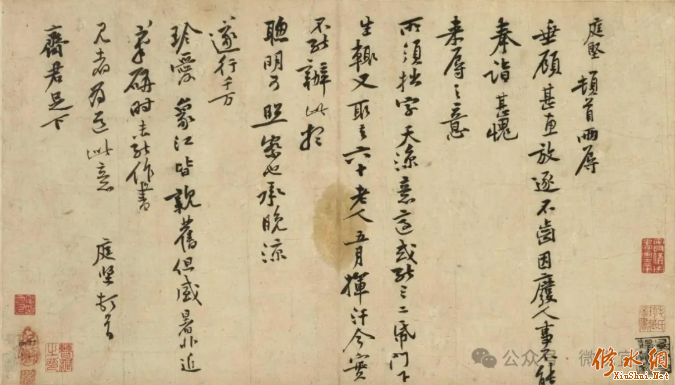 庭堅頓首兩辱
垂顧甚惠放逐不齒因廢人事不能
奉詣甚愧
来辱之意
所須拙字天凉意適或能三二紙門下
生輒又取去六十老人五月揮汗今實
不能辦此想
聰明可照察也承晚涼
遂行千万
珍愛象江皆親舊但盛暑非近
筆研時未能作書
見者為道此意 庭堅頓首
齊君足下
公众号 · 微
修水網
XinShui.Net